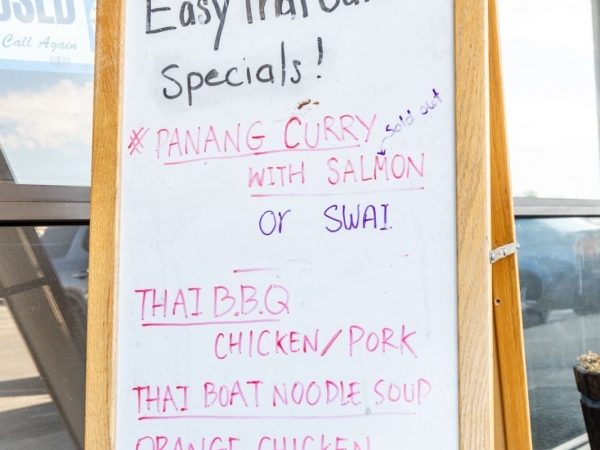 Easy Thai
Specials!
* PANANG CURRY
Sold out
WITH SALMON
or SWAI
THAI B.B.Q
CHICKEN/PORK
THAI BOAT NOODLE SOUP
ORANGE CHICKEN
Call Again